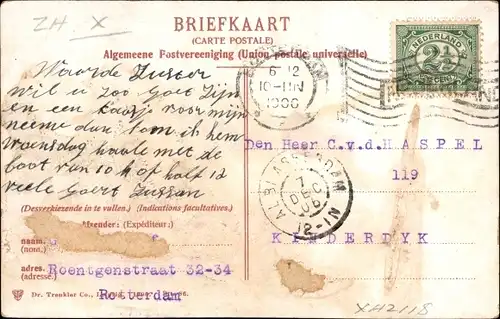 ZH X
BRIEFKAART
(CARTE POSTALE)
Algemeene Postvereeniging (Union postale universelle)
NEDERLAND
2½
CENT
6-12
10-11N
1906
Waarde Zuster
wil u zoo Goet Zijn
en een kaasje voor mijn
neeme dan kom ik hem
Woensdag haale met de
boot van 10 h of half 12
veele Goert Zussan
Den Heer C.v.d.HASPEL
119
ALBLASSERDAM
7
DEC
06
12-1N
KINDERDYK
(Desverkiezende in te vullen.) (Indications facultatives.)
Afzender: (Expéditeur:)
naam.
(nom.)
adres. Roentgenstraat 32-34
(adresse.)
Rotterdam
Dr. Trenkler Co.,
XH2118